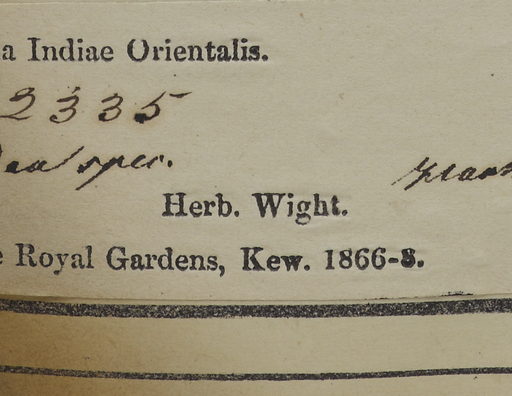 a Indiae Orientalis.
2335
spec.
Herb. Wight.
e Royal Gardens, Kew. 1866-8.